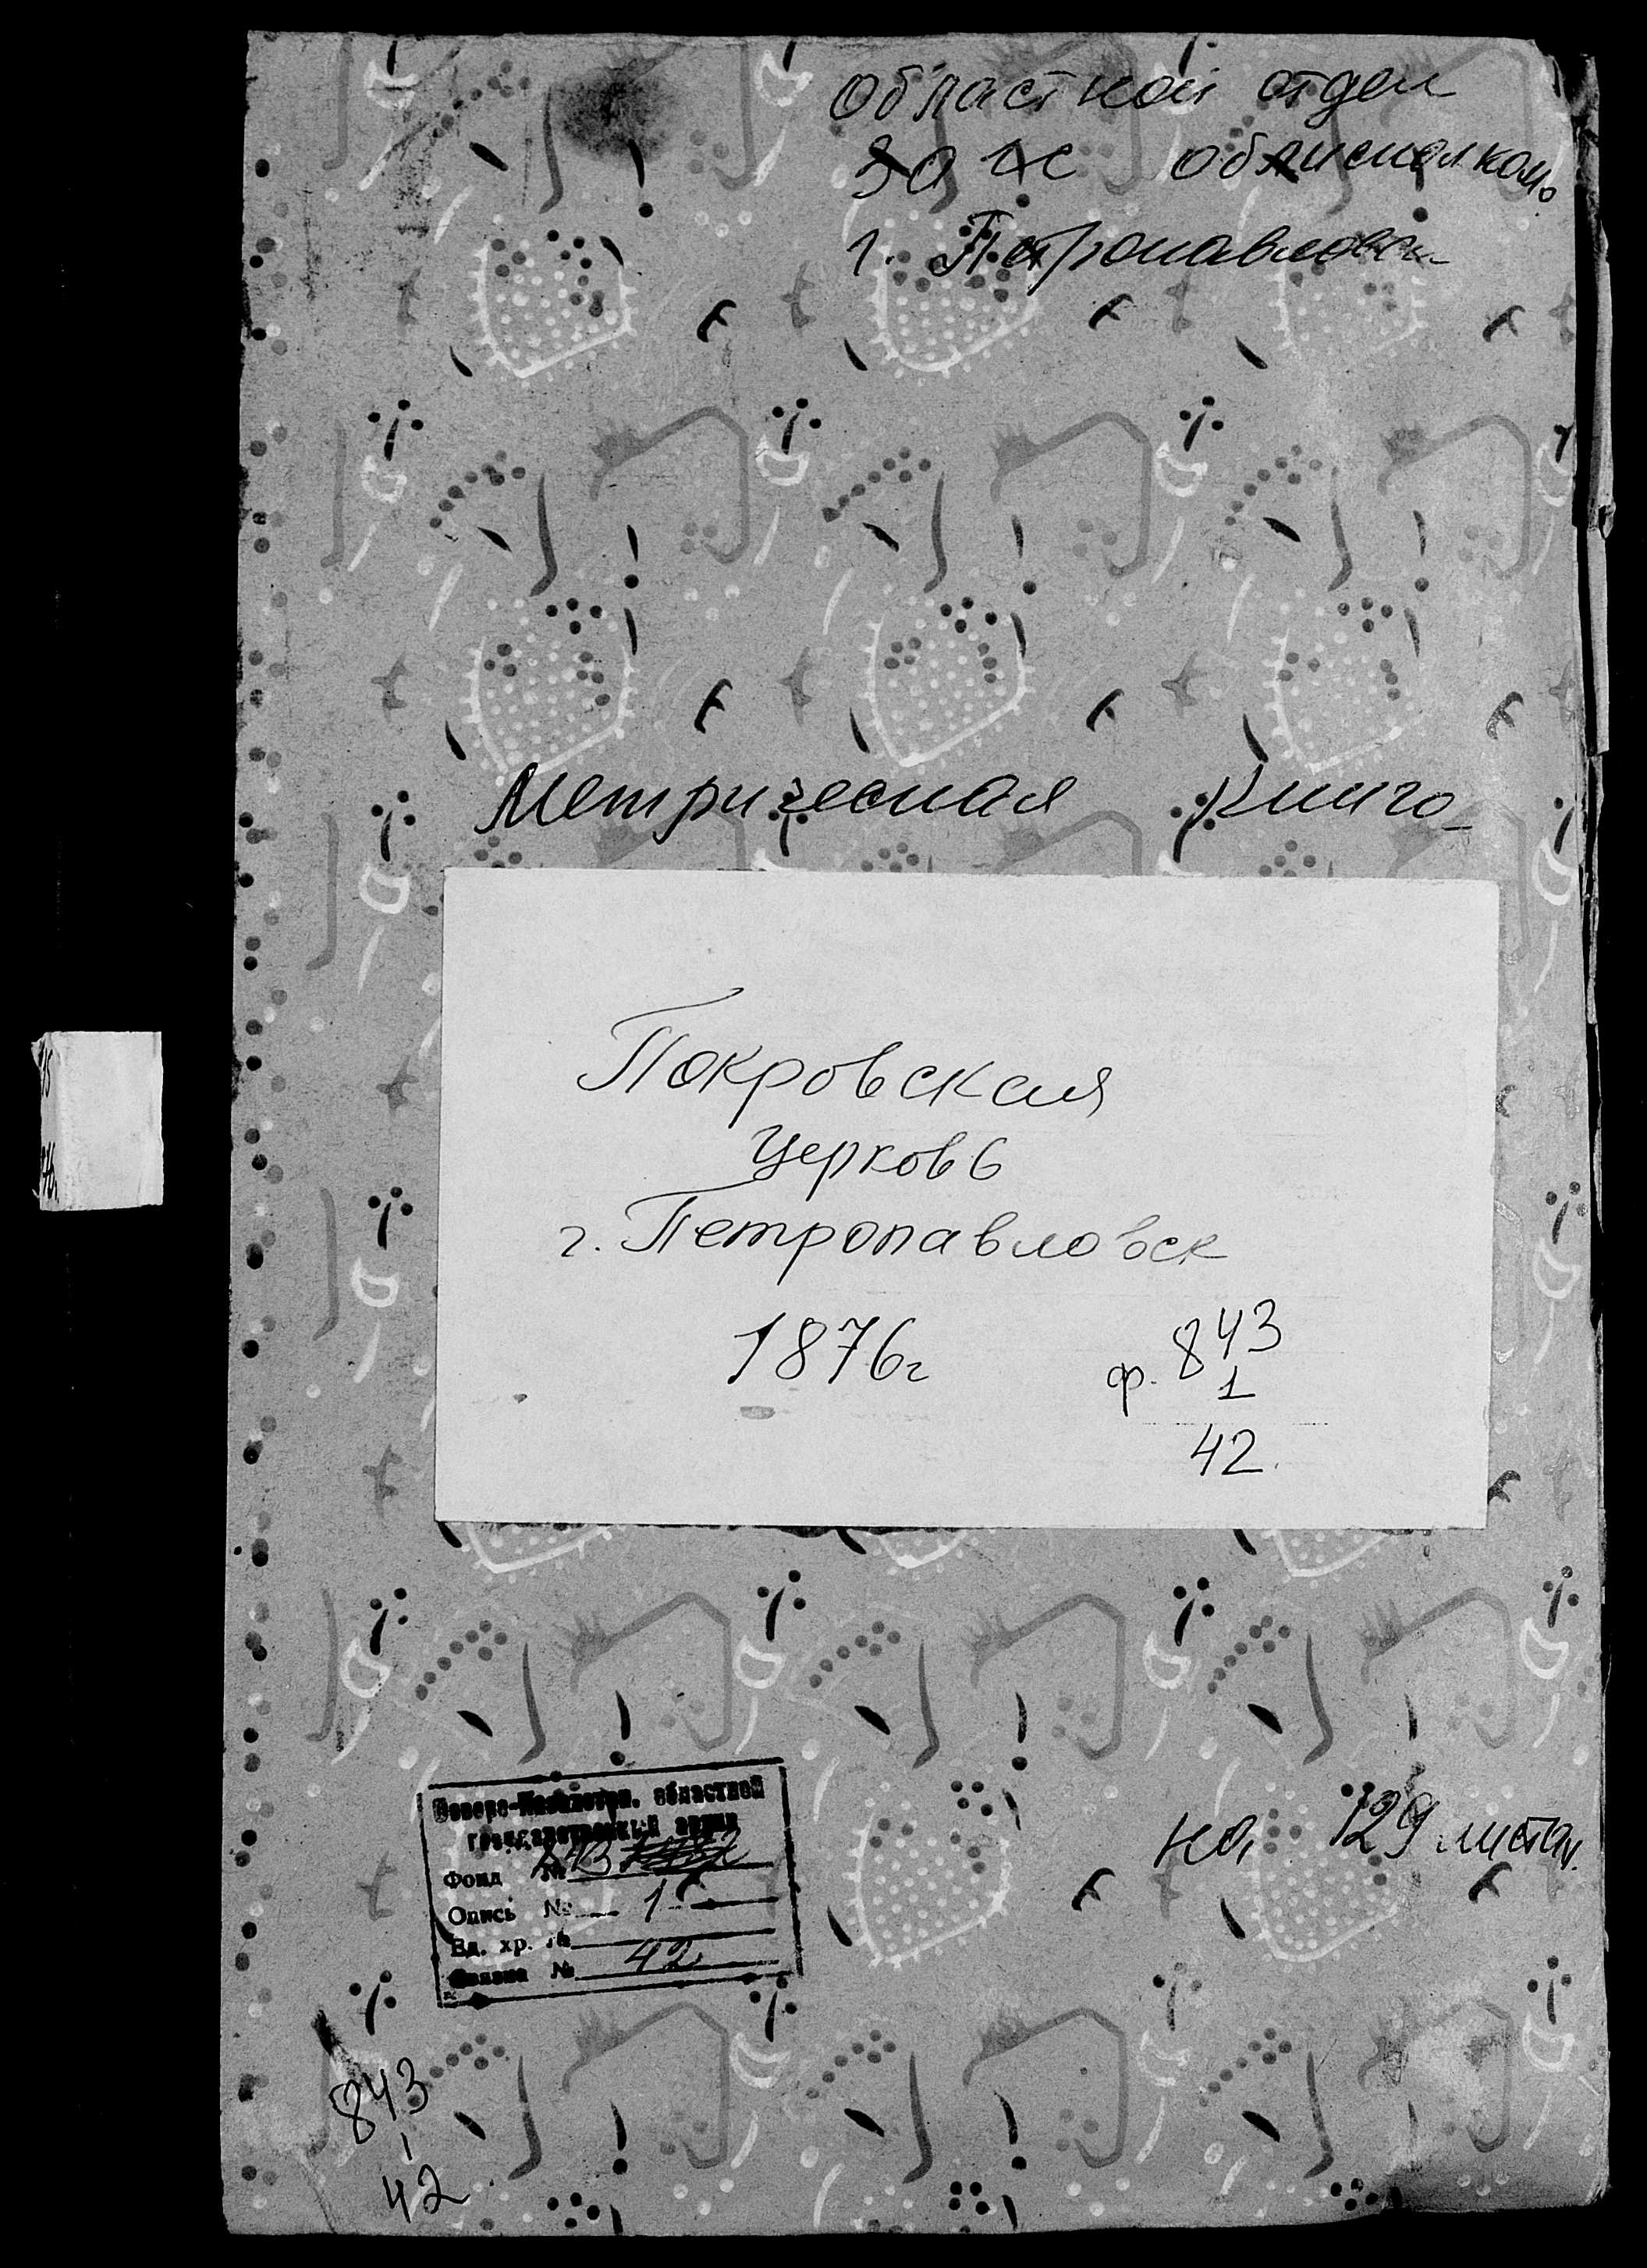 Областной отдел
ЗАГС облисполкома
г. Петропавловск
Метрическая книга
Покровская
церковь
г. Петропавловск
1876г
ф. 843
1
42.
на 129 листах.
Северо-Казахстан. областной
государственный архив
Фонд № 843
Опись № 1
Ед. хр. №
№ 42
843
1
42